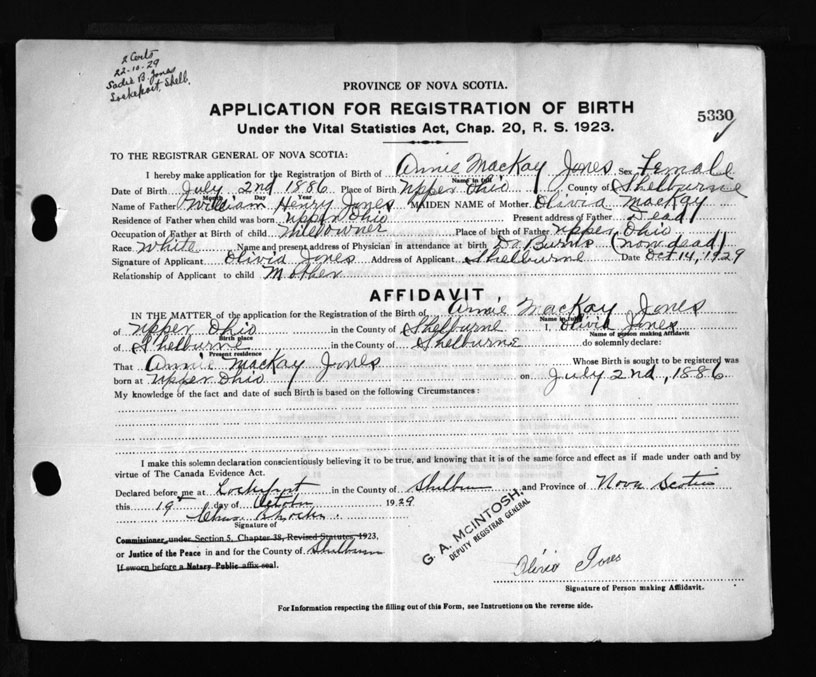 2 Certs
22-10-29
Sadie B. Jones
Lockeport, Shelb.
PROVINCE OF NOVA SCOTIA.
APPLICATION FOR REGISTRATION OF BIRTH
5330
Under the Vital Statistics Act, Chap. 20, R. S. 1923.
TO THE REGISTRAR GENERAL OF NOVA SCOTIA:
I hereby make application for the Registration of Birth of Annie MacKay Jones Sex Female
Name in full
Date of Birth July 2nd 1886 Place of Birth Upper Ohio County of Shelbourne
Month Day Year
Name of Father William Henry Jones MAIDEN NAME of Mother Olivia MacKay
Residence of Father when child was born Upper Ohio Present address of Father Dead
Occupation of Father at Birth of child Millowner Place of birth of Father Upper Ohio
Race White Name and present address of Physician in attendance at birth Dr Burns (now dead)
Signature of Applicant Olivia Jones Address of Applicant Shelburne Date Oct 14, 1929
Relationship of Applicant to child Mother
AFFIDAVIT
IN THE MATTER of the application for the Registration of the Birth of Annie MacKay Jones
Name in full
of Upper Ohio in the County of Shelburne I, Olivia Jones
Birth place Name of person making Affidavit
of Shelburne in the County of Shelburne do solemnly declare:
Present residence
That Annie MacKay Jones Whose Birth is sought to be registered was
born at Upper Ohio on July 2nd, 1886
My knowledge of the fact and date of such Birth is based on the following Circumstances:
I make this solemn declaration conscientiously believing it to be true, and knowing that it is of the same force and effect as if made under oath and by
virtue of The Canada Evidence Act.
Declared before me at Lockeport in the County of Shelburne and Province of Nova Scotia
this 19th day of October 1929
Signature of
Commissioner, under Section 5, Chapter 38, Revised Statutes, 1923,
or Justice of the Peace in and for the County of Shelburne
If sworn before a Notary Public affix seal.
G. A. MCINTOSH,
DEPUTY REGISTRAR GENERAL
Olivia Jones
Signature of Person making Affidavit.
For Information respecting the filling out of this Form, see Instructions on the reverse side.